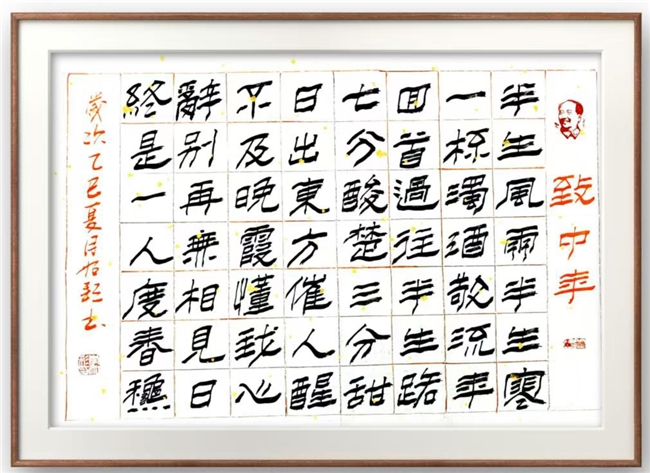 致中年
半生風雨半生寒
一杯濁酒敬流年
回首過往半生路
七分酸楚三分甜
日出東方催人醒
不及晚霞懂我心
辭別再無相見日
終是一人度春穐
歲次乙巳夏月書